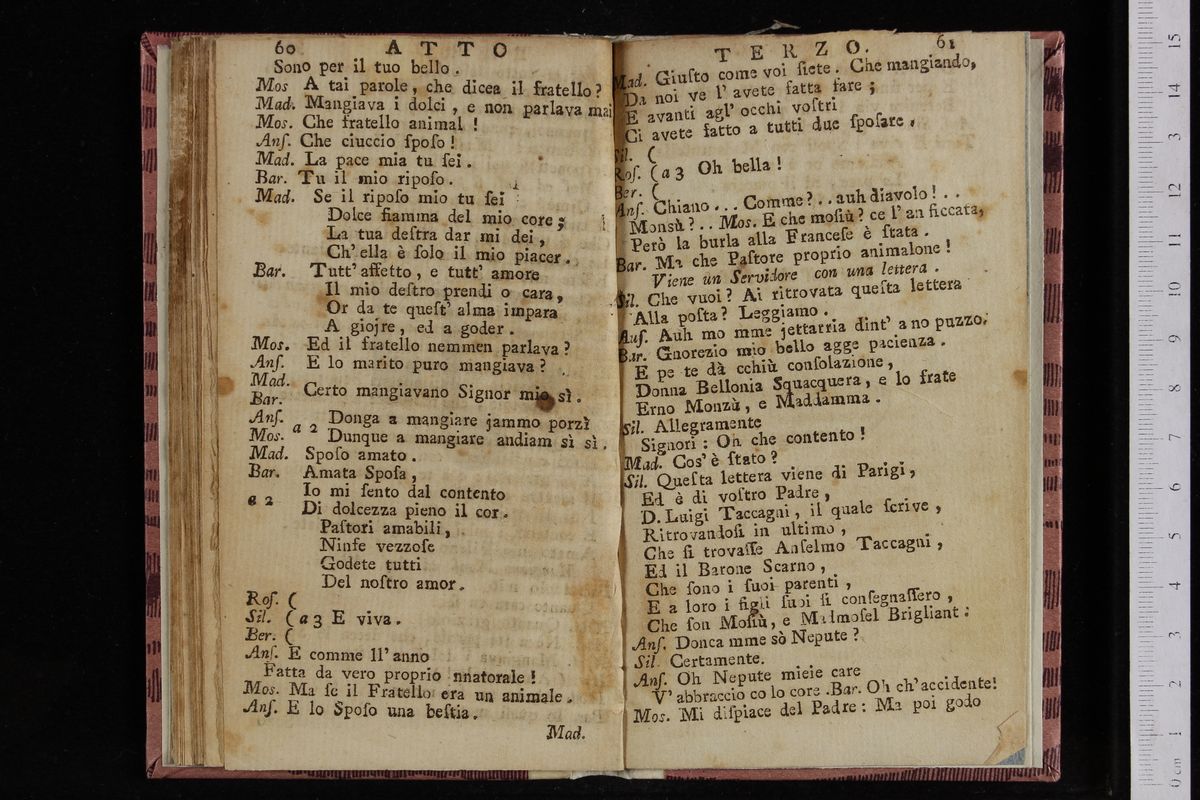 60 ATTO
Sono per il tuo bello.
Mos A tai parole, che dicea il fratello?
Mad. Mangiava i dolci, e non parlava mai
Mos. Che fratello animal!
Anſ. Che ciuccio ſpoſo!
Mad. La pace mia tu ſei.
Bar. Tu il mio ripoſo.
Mad. Se il ripoſo mio tu ſei
Dolce fiamma del mio core;
La tua deſtra dar mi dei,
Ch' ella è ſolo il mio piacer.
Bar. Tutt' affetto, e tutt' amore
Il mio deſtro prendi o cara,
Or da te queſt' alma impara
A giojre, ed a goder.
Mos. Ed il fratello nemmen parlava?
Anſ. E lo marito puro mangiava?
Mad.
Bar. Certo mangiavano Signor mio sì.
Anſ. a 2 Donga a mangiare jammo porzì
Mos. Dunque a mangiare andiam sì sì.
Mad. Spoſo amato.
Bar. Amata Spoſa,
a 2 Io mi ſento dal contento
Di dolcezza pieno il cor.
Paſtori amabili,
Ninfe vezzoſe
Godete tutti
Del noſtro amor.
Roſ. (
Sil. ( a 3 E viva.
Ber. (
Anſ. E comme ll' anno
Fatta da vero proprio nnatorale!
Mos. Ma ſe il Fratello era un animale.
Anſ. E lo Spoſo una beſtia.
Mad.
TERZO. 61
Mad. Giuſto come voi ſiete. Che mangiando,
Da noi ve l' avete fatta fare;
E avanti agl' occhi voſtri
Ci avete fatto a tutti due ſpoſare.
Sil. (
Roſ. ( a 3 Oh bella!
Ber. (
Anſ. Chiano... Comme?.. auh diavolo!..
Monsù?.. Mos. E che moſiù? ce l' an ficcata,
Però la burla alla Franceſe è ſtata.
Bar. Ma che Paſtore proprio animalone!
Viene un Servidore con una lettera.
Sil. Che vuoi? Ai ritrovata queſta lettera
Alla poſta? Leggiamo.
Auſ. Auh mo mme jettarria dint' a no puzzo.
Bar. Gnorezio mio bello agge pacienza.
E pe te dà cchiù conſolazione,
Donna Bellonia Squacquera, e lo frate
Erno Monzù, e Maddamma.
Sil. Allegramente
Signori: Oh che contento!
Mad. Cos' è ſtato?
Sil. Queſta lettera viene di Parigi,
Ed è di voſtro Padre,
D. Luigi Taccagni, il quale ſcrive,
Ritrovandoſi in ultimo,
Che ſi trovaſſe Anſelmo Taccagni,
Ed il Barone Scarno,
Che ſono i ſuoi parenti,
E a loro i figli ſuoi ſi conſegnaſſero,
Che ſon Moſiù, e Madmoſel Brigliant:
Anſ. Donca mme sò Nepute?
Sil Certamente.
Anſ. Oh Nepute mieie care
V' abbraccio co lo core. Bar. Oh ch' accidente!
Mos. Mi diſpiace del Padre: Ma poi godo